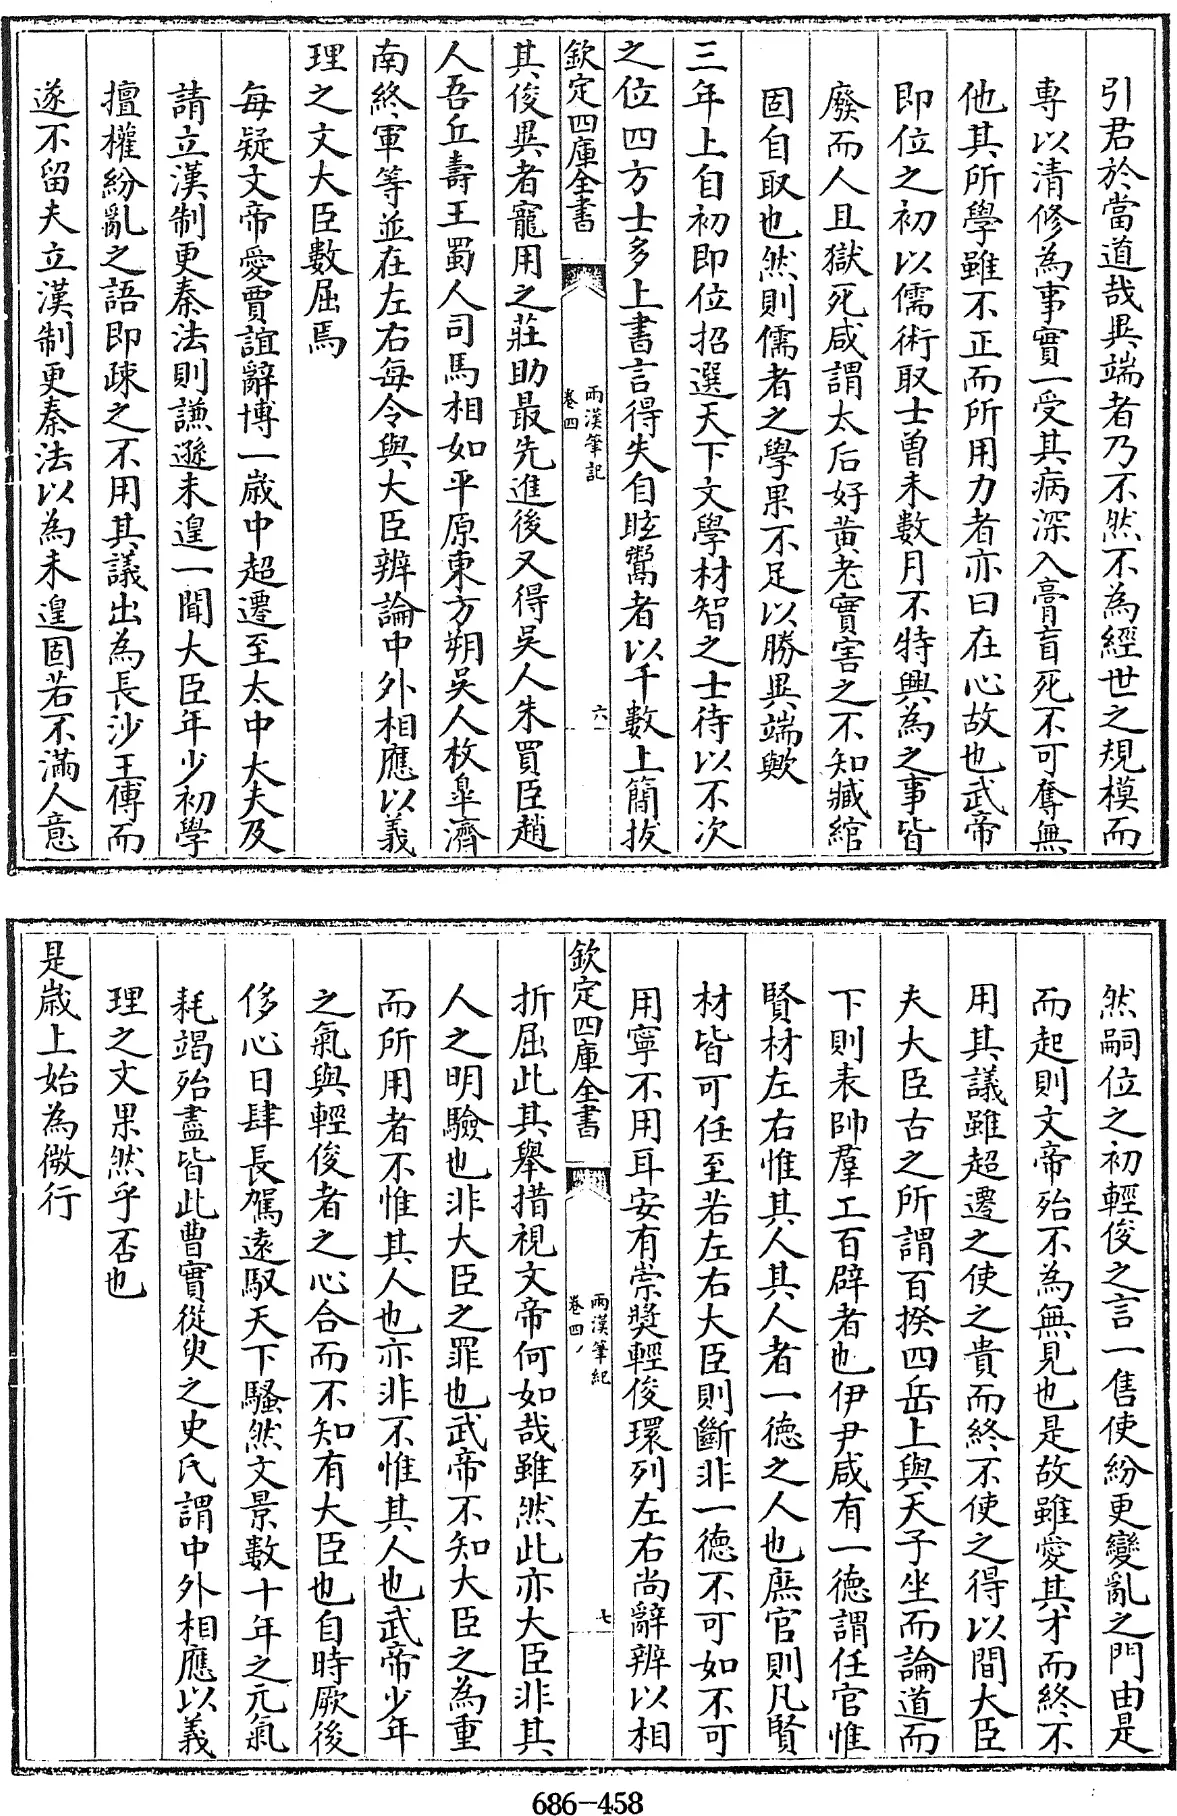 引君於當道哉異端者乃不然不為經世之規模而
專以清修為事實一受其病深入膏肓死不可奪無
他其所學雖不正而所用力者亦曰在心故也武帝
即位之初以儒術取士曾未數月不特興為之事皆
廢而人且獄死咸謂太后好黄老實害之不知臧綰
固自取也然則儒者之學果不足以勝異端歟
三年上自初即位招選天下文學材智之士待以不次
之位四方士多上書言得失自眩鬻者以千數上簡拔
欽定四庫全書
兩漢筆記
卷四
六
其俊異者寵用之莊助最先進後又得吳人朱買臣趙
人吾丘壽王蜀人司馬相如平原東方朔吳人枚臯濟
南終軍等並在左右每令與大臣辨論中外相應以義
理之文大臣數屈焉
每疑文帝愛賈誼辭博一歲中超遷至太中大夫及
請立漢制更秦法則謙遜未遑一聞大臣年少初學
擅權紛亂之語即疎之不用其議出為長沙王傅而
遂不留夫立漢制更秦法以為未遑固若不滿人意
然嗣位之初輕俊之言一售使紛更變亂之門由是
而起則文帝殆不為無見也是故雖愛其才而終不
用其議雖超遷之使之貴而終不使之得以間大臣
夫大臣古之所謂百揆四岳上與天子坐而論道而
下則表帥羣工百辟者也伊尹咸有一德謂任官惟
賢材左右惟其人其人者一德之人也庶官則凡賢
材皆可任至若左右大臣則斷非一德不可如不可
用寧不用耳安有崇奬輕俊環列左右尚辭辨以相
欽定四庫全書
兩漢筆紀
卷四
七
折屈此其舉措視文帝何如哉雖然此亦大臣非其
人之明驗也非大臣之罪也武帝不知大臣之為重
而所用者不惟其人也亦非不惟其人也武帝少年
之氣與輕俊者之心合而不知有大臣也自時厥後
侈心日肆長駕遠馭天下騷然文景數十年之元氣
耗竭殆盡皆此曹實從臾之史氏謂中外相應以義
理之文果然乎否也
是歲上始為微行
686-458